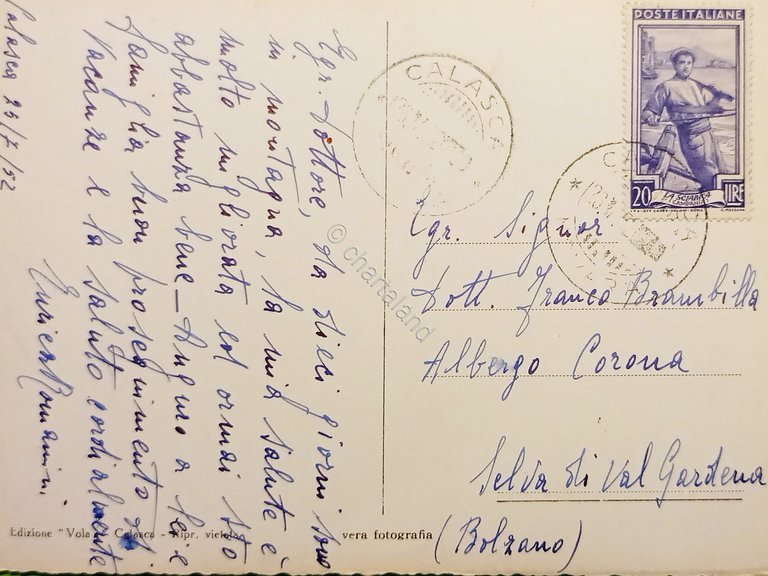 Calasca 25/7/52
Egr. Dottore, da dieci giorni sono
in montagna, la mia salute è
molto migliorata ed ormai sto
abbastanza bene - Auguro a lei e
famiglia buon proseguimento di
Vacanze e la saluto cordialmente
Enrico Romanini.
Edizione "Vola" Calasca - Ripr. vietata
vera fotografia
CALASCA
POSTE ITALIANE
20 LIRE
LA SCIABICA
CAMPANIA
Egr. Signor
Dott. Franco Brambilla
Albergo Corona
Selva di Val Gardena
(Bolzano)
© chartaland